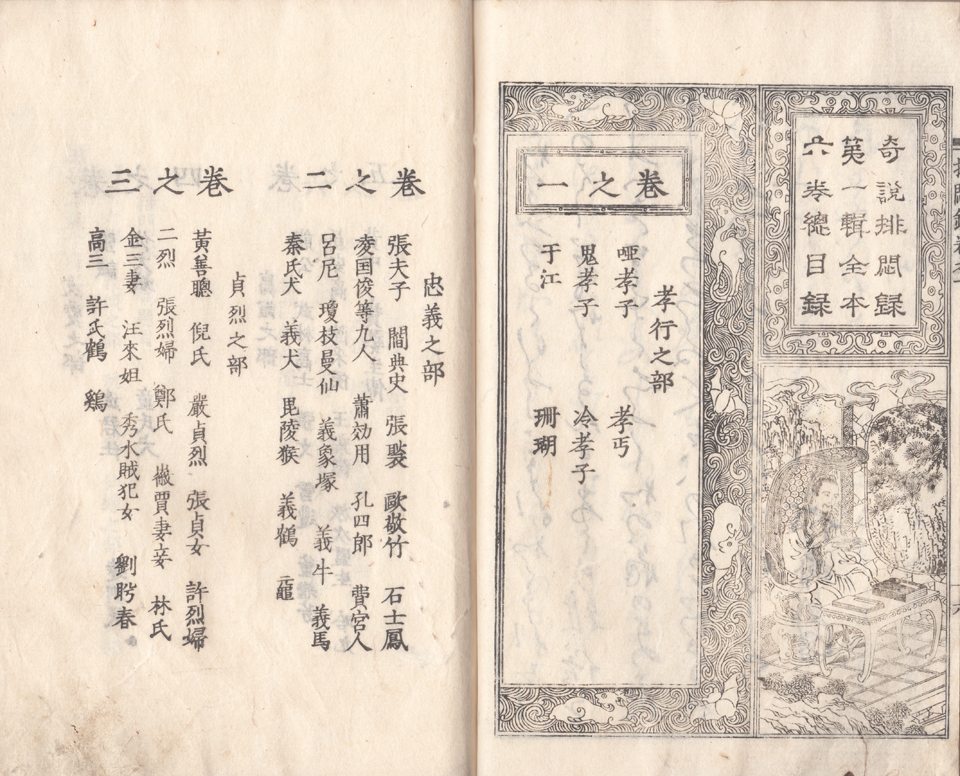 奇說排悶録
第一輯全本
六卷總目録
卷之一
孝行之部
啞孝子 孝丐
鬼孝子 冷孝子
于江 珊瑚
卷之二
忠義之部
張夫子 閻典史 張䶮 歐敬竹 石士鳳
凌国俊等九人 蕭効用 孔四郎 費宮人
呂尼 瓊枝曼仙 義象塚 義牛 義馬
秦氏犬 義犬 毘陵猴 義鶴
卷之三
貞烈之部
黃善聰 倪氏 嚴貞烈 張貞女 許烈婦
二烈 張烈婦 鄭氏 賈妻妾 林氏
金三妻 汪來姐 秀水賊犯女 劉盻春
高三 許氏鶴 鷄